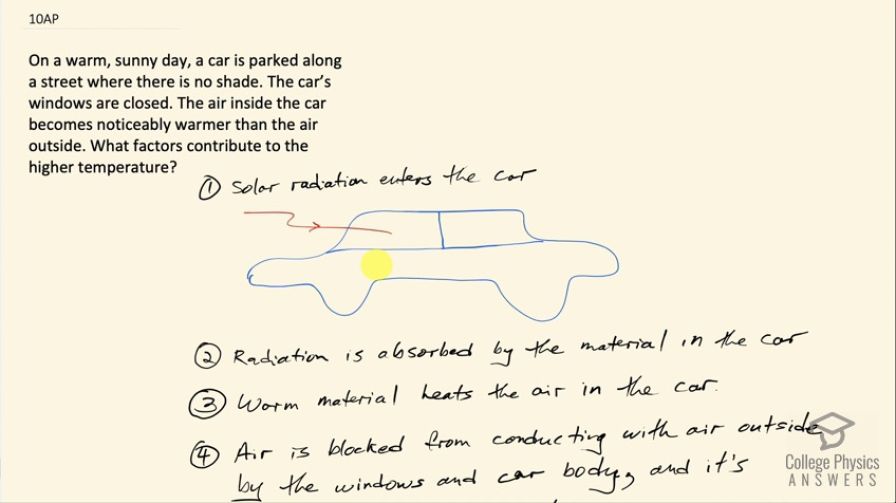 10AP
On a warm, sunny day, a car is parked along
a street where there is no shade. The car's
windows are closed. The air inside the car
becomes noticeably warmer than the air
outside. What factors contribute to the
higher temperature?
① Solar radiation enters the car
② Radiation is absorbed by the material in the car
③ Warm material heats the air in the car.
④ Air is blocked from conducting with air outside
by the windows and car body, and it's
College Physics
ANSWERS